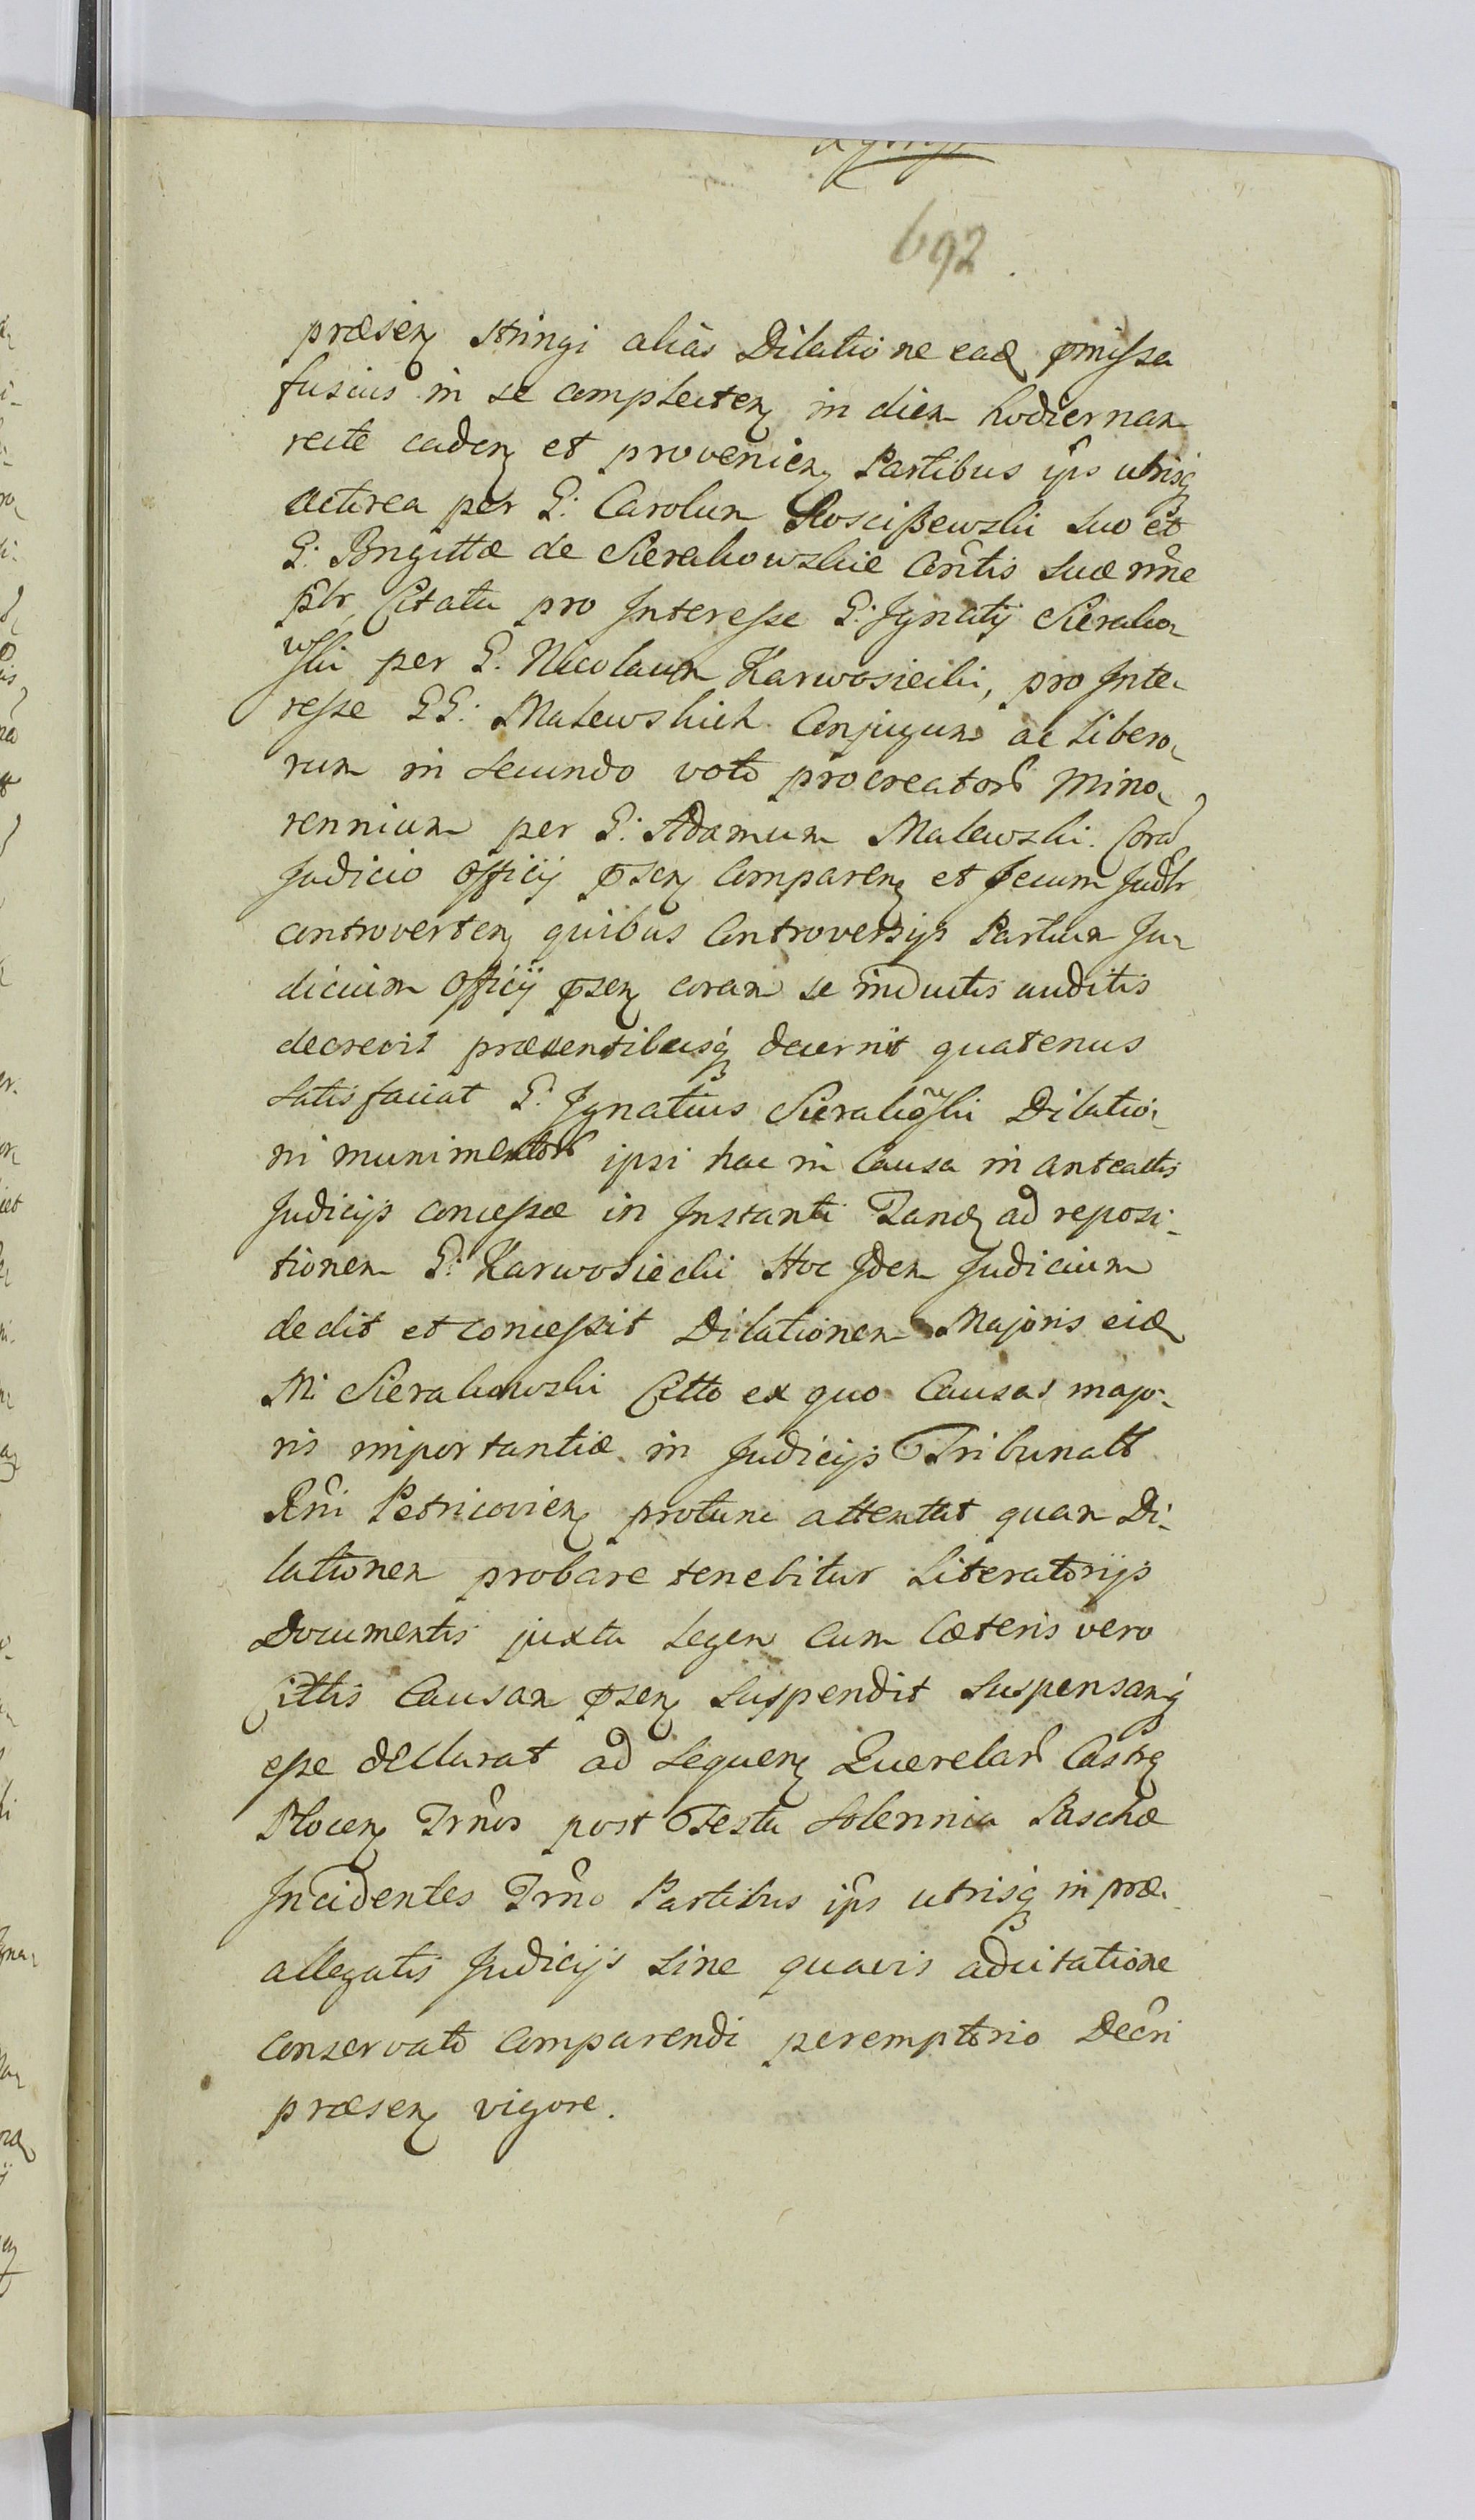 692
præsen stringi alias Dilatione ead pmissa
fusius in se complecten in diem hodiernam
recte caden et provenien Partibus ips utrisq
actorea per G: Carolum Rosciszewski suo et
G: Brigittæ de Sierakowskie Contis suæ nne
pltr, Citata pro Interesse G: Ignatij Sierako-
wski per G. Nicolaum Karwosiecki, pro Inte-
resse GG: Malewskich Conjugum ac libero-
rum in secundo voto procreator mino-
rennium per G: Adamum Malewski. Cora
Judicio Officij psen comparen et secum Judltr
controverten quibus Controversijs Partium Ju-
dicium Officij psen coram se inductis auditis
decrevit præsentibusq decernit quatenus
satisfaciat G: Ignatius Sierakowski Dilatio-
ni munimentor ipsi hac in Causa in anteactis
Judicijs concessæ in Instanti Tand ad reposi-
tionem G: Karwosiecki Hoc Idem Judicium
dedit et concessit Dilationem Majoris eid
M: Sierakowski Citto ex quo Causas majo-
ris importantiæ in Judicijs Tribunalt
Rni Petricovien protunc attentat quam Di-
lationem probare tenebitur Literatorijs
Documentis juxta Legem cum Cæteris vero
Cittis Causam psen suspendit suspensamq
esse declarat ad sequen Querelar Castr
Plocen Trnos post Festa Solennia Paschæ
Incidentes Trno Partibus ips utrisq in præ-
allegatis Judicijs sine quavis adcitatione
conservato comparendi peremptorio Decri
præsen vigore.